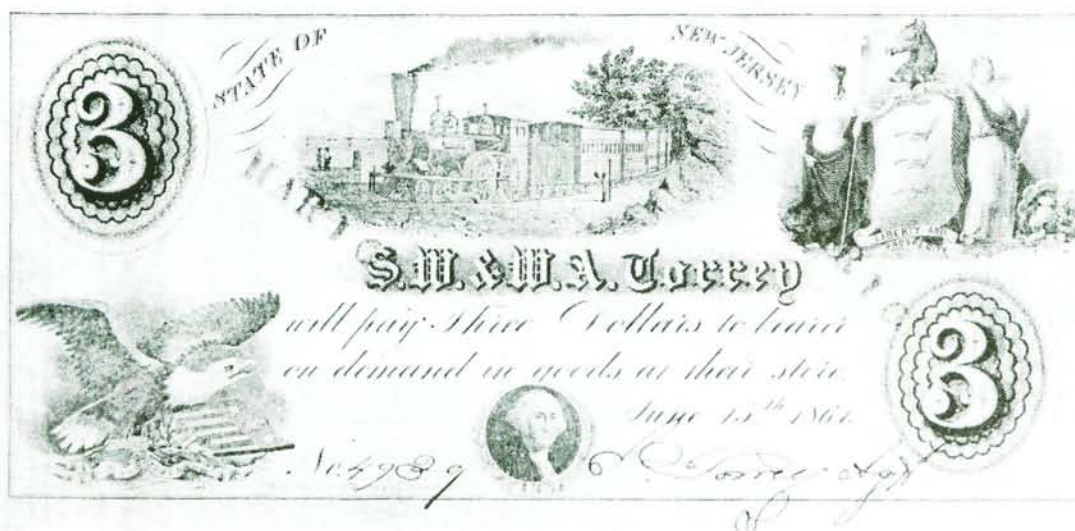 3
STATE OF NEW JERSEY
LIBERTY AND
S.W. & W.A. Torrey
will pay Three Dollars to bearer
on demand in goods at their store.
June 15th 186
3
No. 4989
Torrey Agt